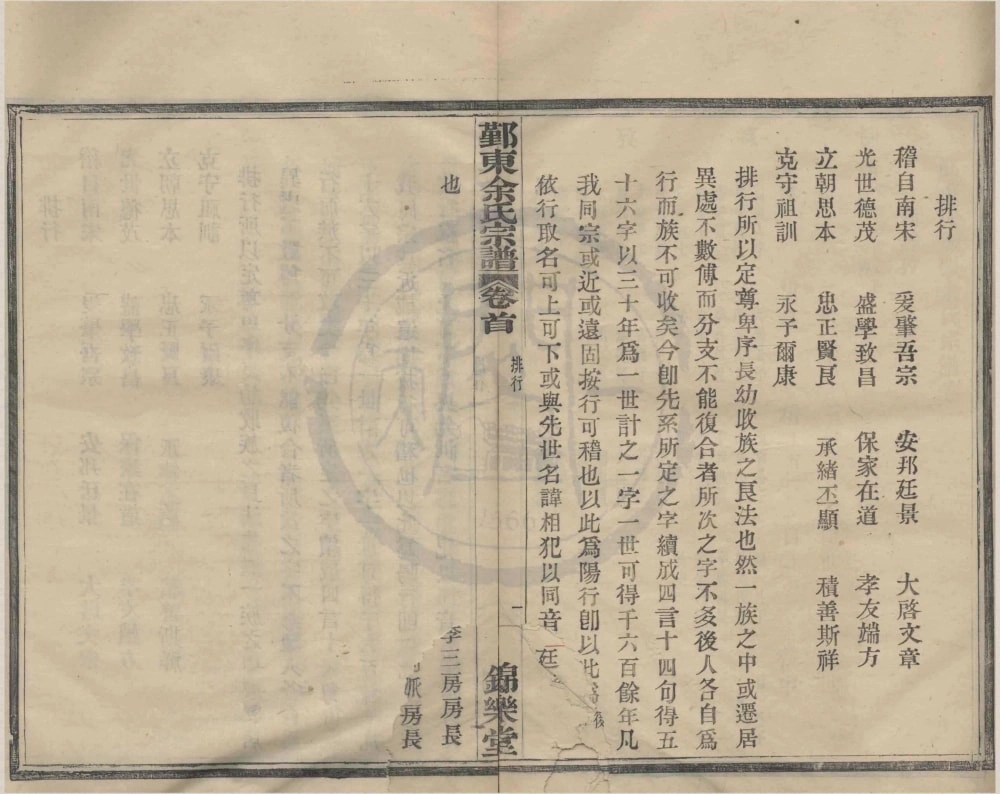 排行
稽自南宋 爰肇吾宗 安邦廷景 大啓文章
光世德茂 盛學致昌 保家在道 孝友端方
立朝思本 忠正賢良 承緒丕顯 積善斯祥
克守祖訓 永予爾康
排行所以定尊卑序長幼收族之良法也然一族之中或遷居
異處不數傳而分支不能復合者所次之字不多後人各自爲
行而族不可收矣今卽先系所定之字續成四言十四句得五
十六字以三十年爲一世計之一字一世可得千六百餘年凡
我同宗或近或遠固按行可稽也以此爲陽行卽以此
依行取名可上可下或與先世名諱相犯以同音
鄞東余氏宗譜 卷首 排行 一 錦樂堂
也 李三房房長
派房長